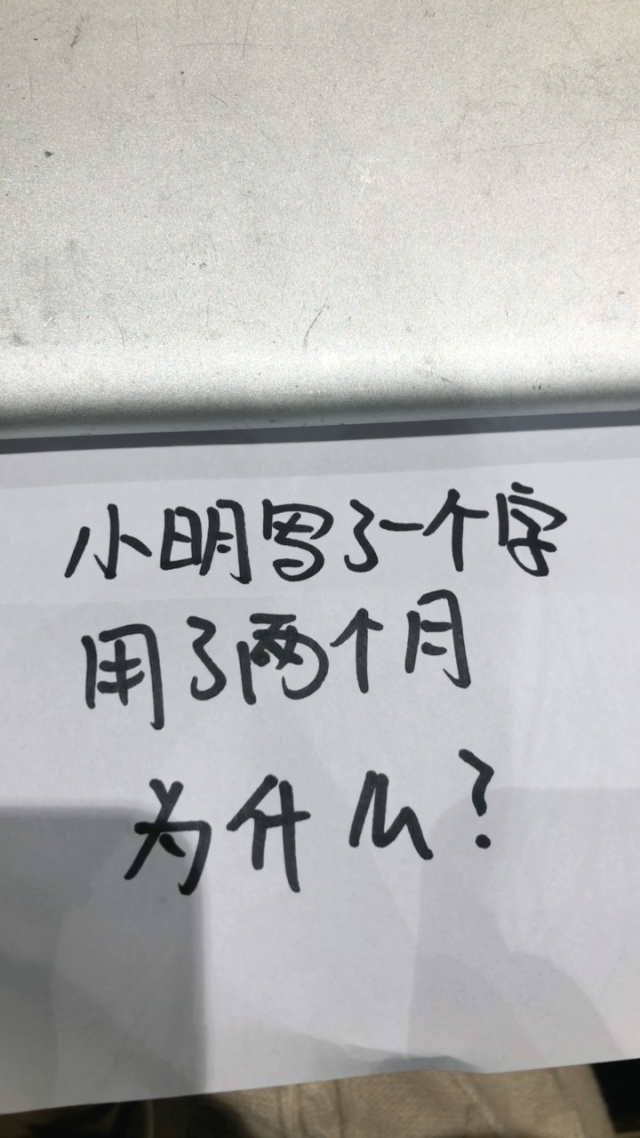 小明写了一个字
用了两个月
为什么?